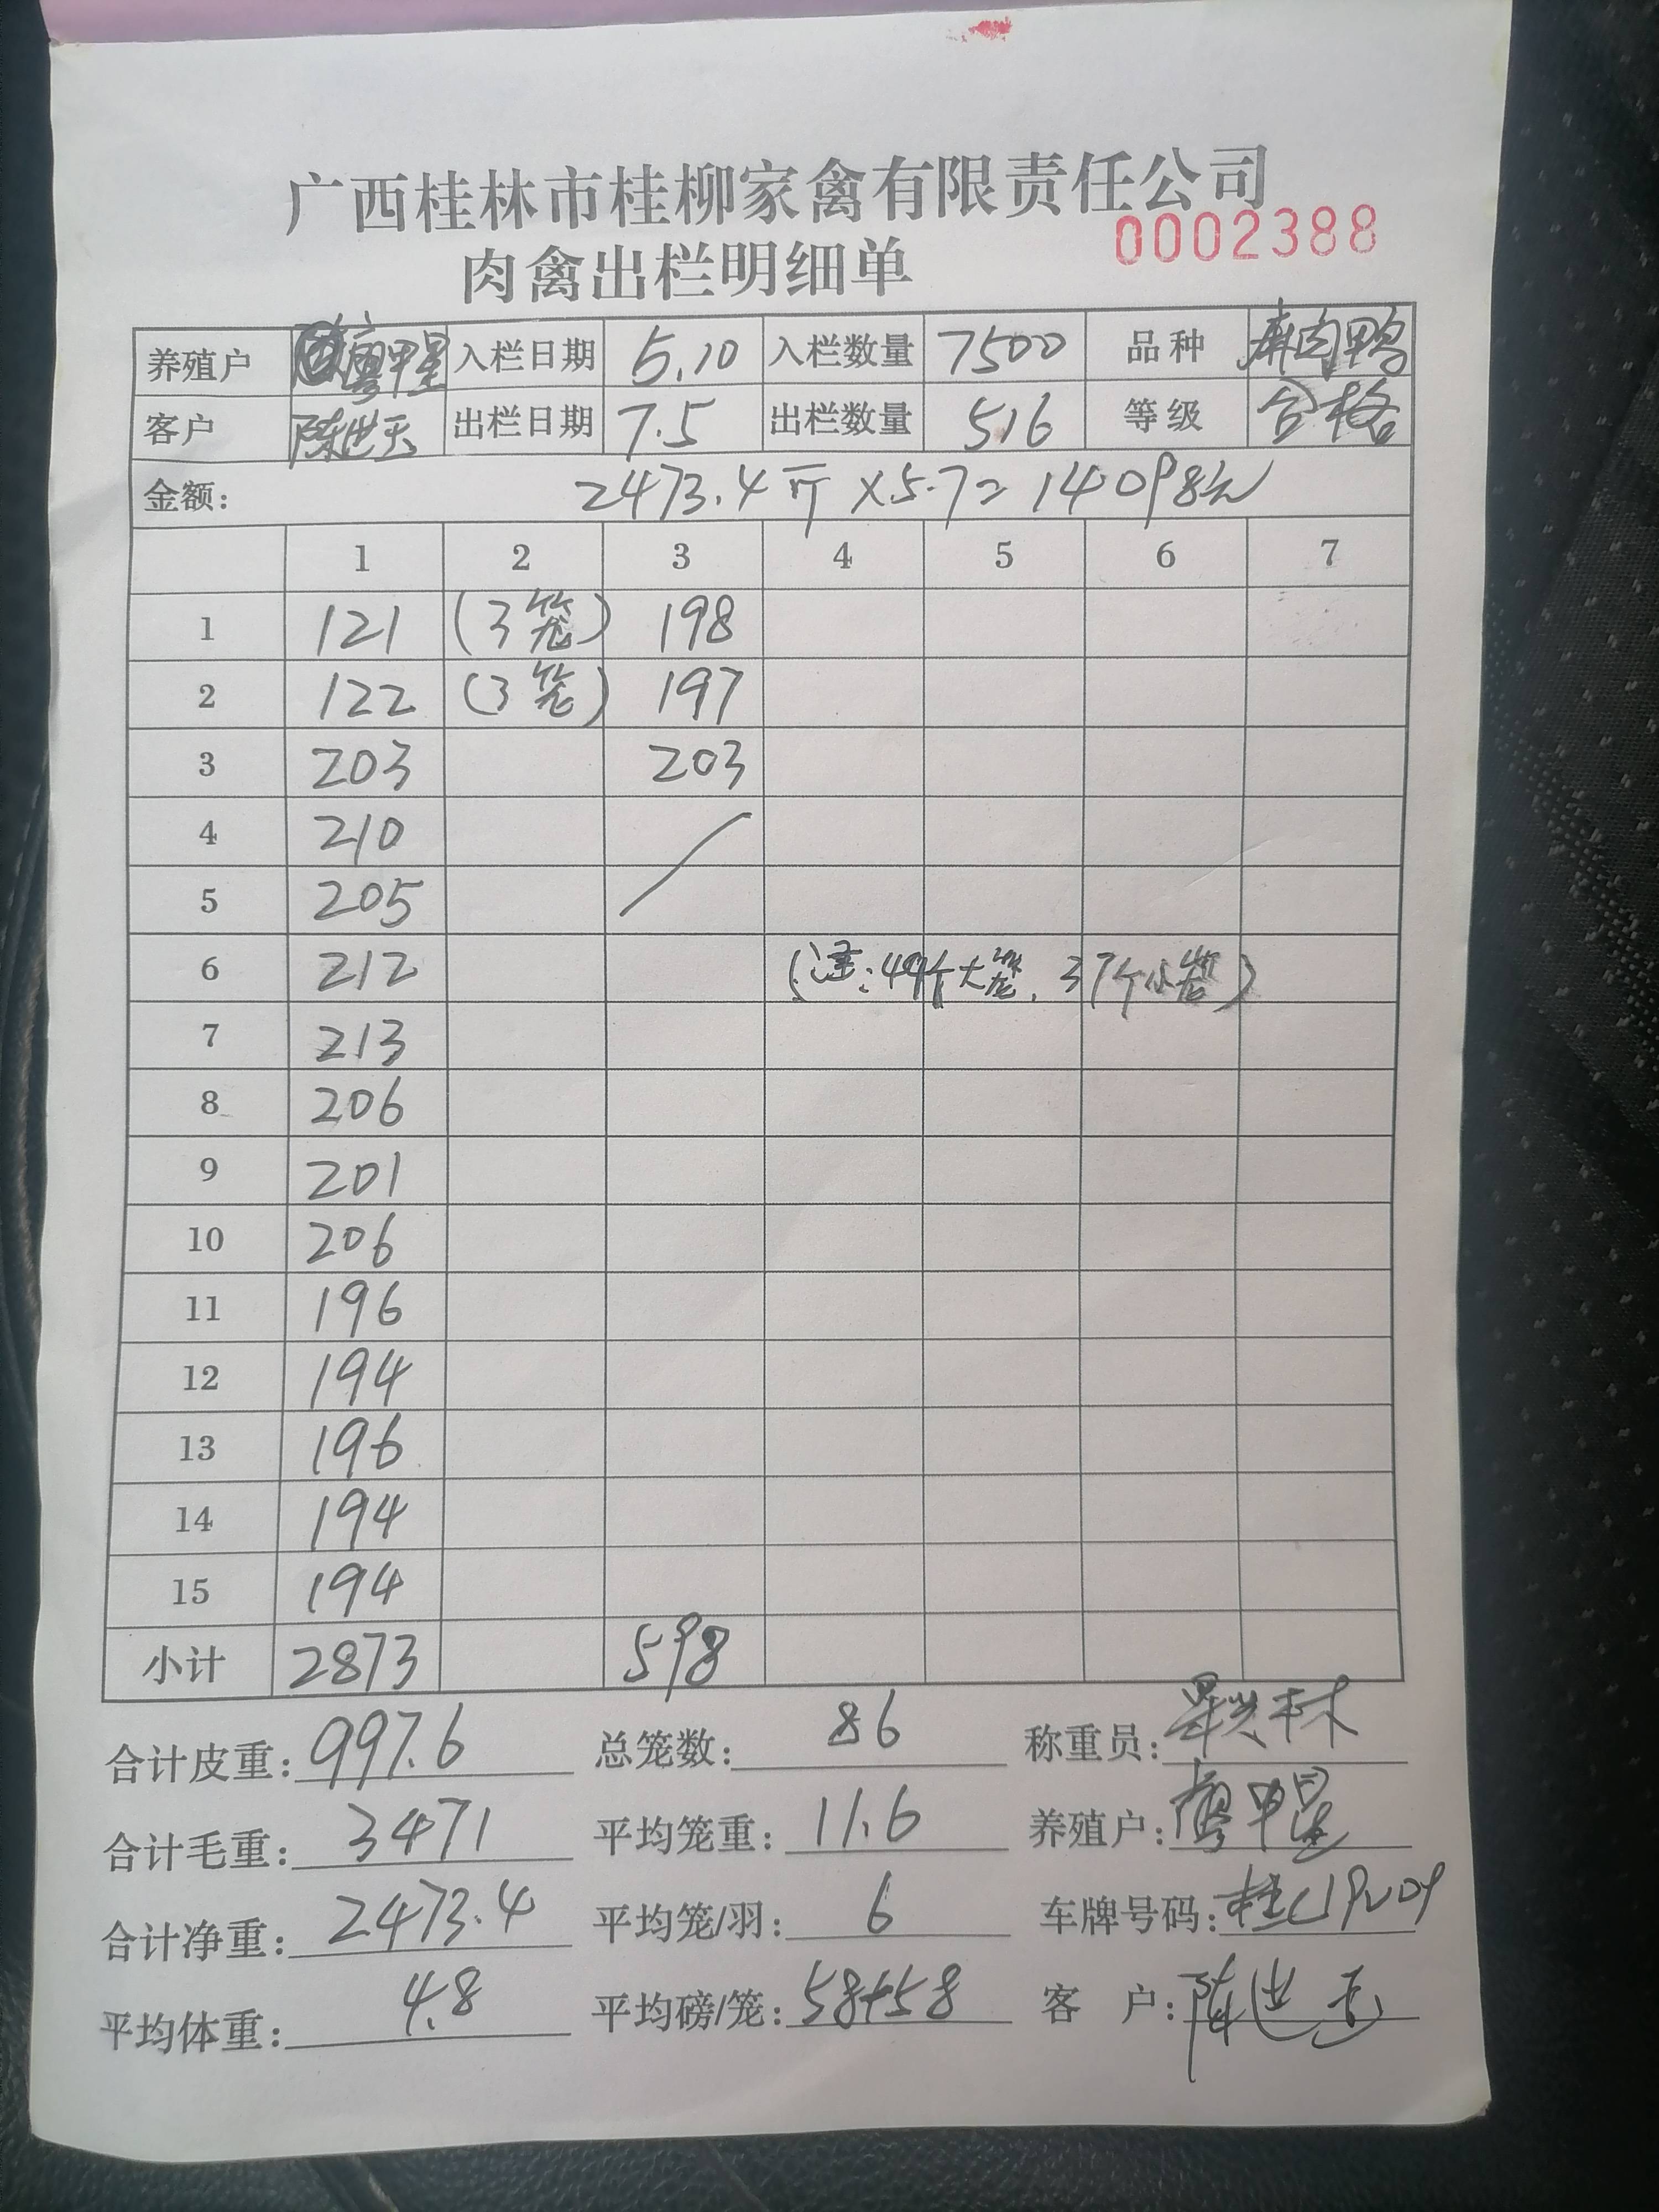 广西桂林市桂柳家禽有限责任公司
0002388
肉禽出栏明细单
养殖户 廖甲星 入栏日期 5.10 入栏数量 7500 品种 麻肉鸭
客户 陈世玉 出栏日期 7.5 出栏数量 516 等级 合格
金额: 2473.4斤×5.7=14098元
1 2 3 4 5 6 7
1 121 (3笼) 198
2 122 (3笼) 197
3 203 203
4 210
5 205
6 212 (注:49个大笼.37个小笼)
7 213
8 206
9 201
10 206
11 196
12 194
13 196
14 194
15 194
小计 2873 598
合计皮重: 997.6 总笼数: 86 称重员:
合计毛重: 3471 平均笼重: 11.6 养殖户: 廖甲星
合计净重: 2473.4 平均笼/羽: 6 车牌号码:
平均体重: 4.8 平均磅/笼: 58+58 客 户: 陈世玉